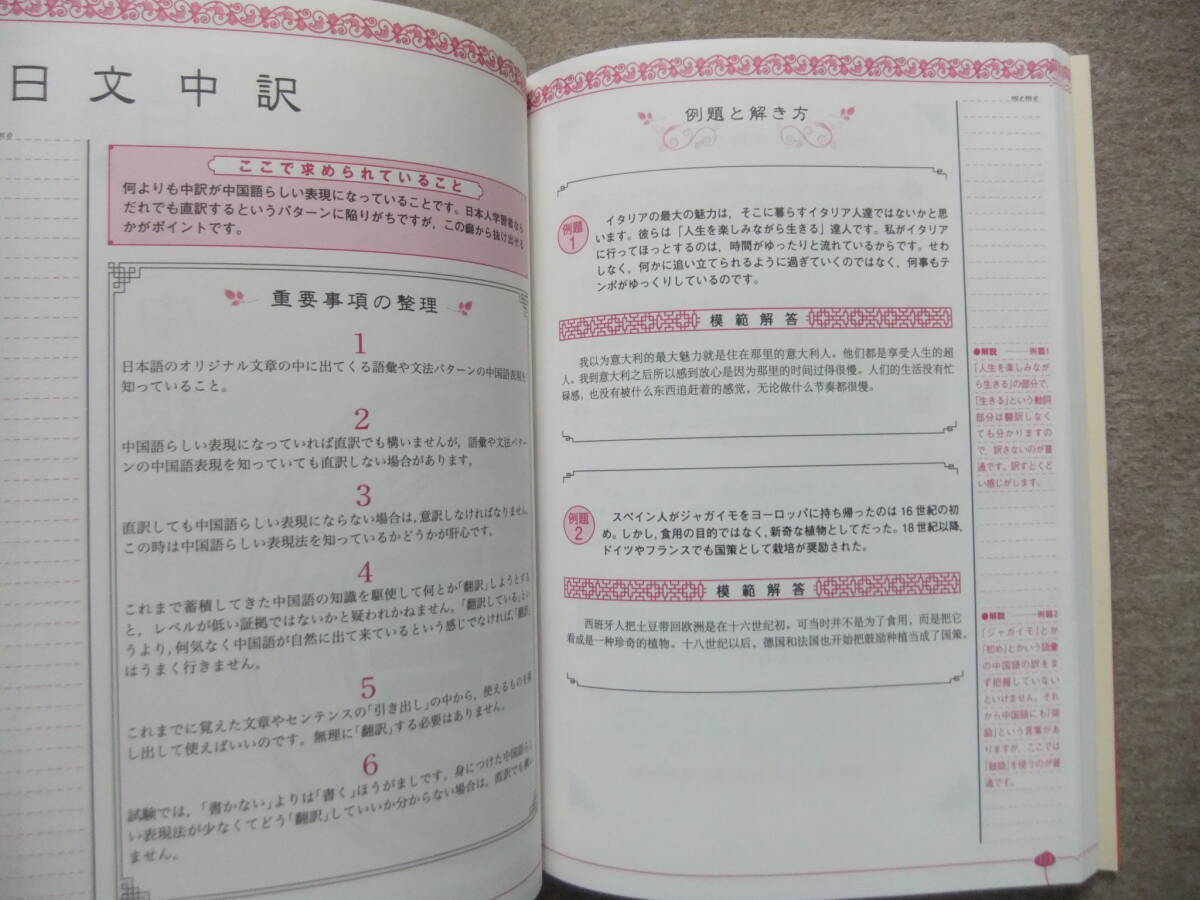 日文中訳
ここで求められていること
何よりも中訳が中国語らしい表現になっていることです。日本人学習者なら
だれでも直訳するというパターンに陥りがちですが，この癖から抜け出せる
かがポイントです。
重要事項の整理
1
日本語のオリジナル文章の中に出てくる語彙や文法パターンの中国語表現を
知っていること。
2
中国語らしい表現になっていれば直訳でも構いませんが，語彙や文法パター
ンの中国語表現を知っていても直訳しない場合があります。
3
直訳しても中国語らしい表現にならない場合は，意訳しなければなりません。
この時は中国語らしい表現法を知っているかどうかが肝心です。
4
これまで蓄積してきた中国語の知識を駆使して何とか「翻訳」しようとする
と，レベルが低い証拠ではないかと疑われかねません。「翻訳している」とい
うより，何気なく中国語が自然に出て来ているという感じでなければ，「翻訳」
はうまく行きません。
5
これまでに覚えた文章やセンテンスの「引き出し」の中から，使えるものを探
し出して使えばいいのです。無理に「翻訳」する必要はありません。
6
試験では，「書かない」よりは「書く」ほうがましです。身につけた中国語らし
い表現法が少なくてどう「翻訳」していいか分からない場合は，直訳でも構い
ません。
例題と解き方
memo
例題
1
イタリアの最大の魅力は，そこに暮らすイタリア人達ではないかと思
います。彼らは「人生を楽しみながら生きる」達人です。私がイタリア
に行ってほっとするのは，時間がゆったりと流れているからです。せわ
しなく，何かに追い立てられるように過ぎていくのではなく，何事もテ
ンポがゆっくりしているのです。
模範解答
我以为意大利的最大魅力就是住在那里的意大利人。他们都是享受人生的超
人。我到意大利之后所以感到放心是因为那里的时间过得很慢。人们的生活没有忙
碌感，也没有被什么东西追赶着的感觉，无论做什么节奏都很慢。
●解説 例題1
「人生を楽しみなが
ら生きる」の部分で，
「生きる」という動詞
部分は翻訳しなく
ても分かりますの
で，訳さないのが普
通です。訳すとくど
い感じがします。
例題
2
スペイン人がジャガイモをヨーロッパに持ち帰ったのは 16 世紀の初
め。しかし，食用の目的ではなく，新奇な植物としてだった。18 世紀以降，
ドイツやフランスでも国策として栽培が奨励された。
模範解答
西班牙人把土豆带回欧洲是在十六世纪初。可当时并不是为了食用，而是把它
看成是一种珍奇的植物。十八世纪以后，德国和法国也开始把鼓励种植当成了国策。
●解説 例題2
「ジャガイモ」とか
「初め」とかいう語彙
の中国語の訳をま
ず把握していない
といけません。それ
から中国語にも「奨
励」という言葉があ
りますが，ここでは
「鼓励」を使うのが普
通です。